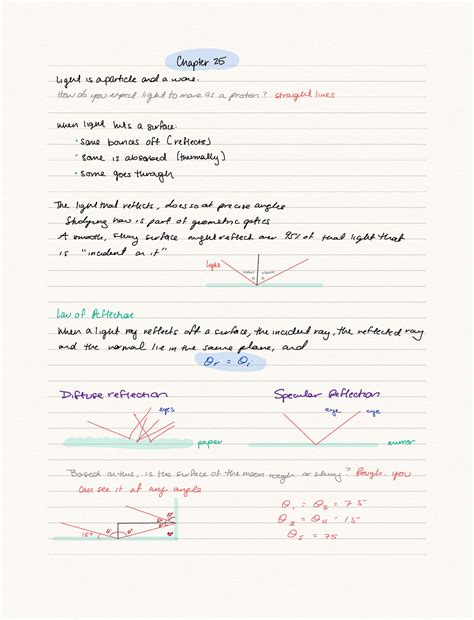 Chapter 25
Light is a particle and a wave.
How do you expect light to move as a proton? straight lines
When light hits a surface:
• some bounces off (reflects)
• some is absorbed (thermally)
• some goes through
The light that reflects, does so at precise angles
Studying how is part of geometric optics
A smooth, shiny surface might reflect over 95% of total light that
is "incident on it"
light
Law of Reflection
When a light ray reflects off a surface, the incident ray, the reflected ray
and the normal lie in the same plane, and
θr = θi
Diffuse reflection Specular Reflection
eyes eye eye
paper mirror
Based on this, is the surface of the moon rough or shiny? Rough. You
can see it at any angle
15°
θ1 = θ2 = 75
θ3 = θ4 = 15
θ5 = 75